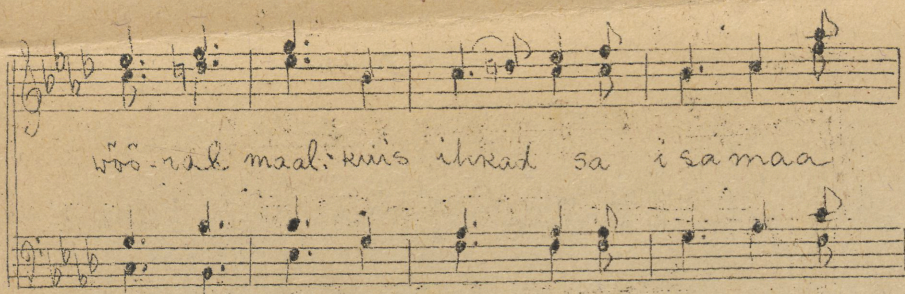 wõõ-ral maal: kuis ihkad sa isamaa